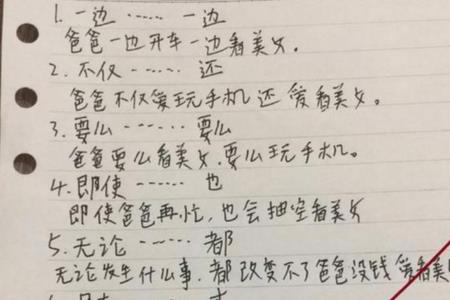 1. 一边 …… 一边
爸爸一边开车一边看美女。
2. 不仅 …… 还
爸爸不仅爱玩手机还爱看美女。
3. 要么 …… 要么
爸爸要么看美女,要么玩手机。
4. 即使 …… 也
即使爸爸再忙,也会抽空看美女
5. 无论 …… 都
无论发生什么事,都改变不了爸爸没钱爱看美